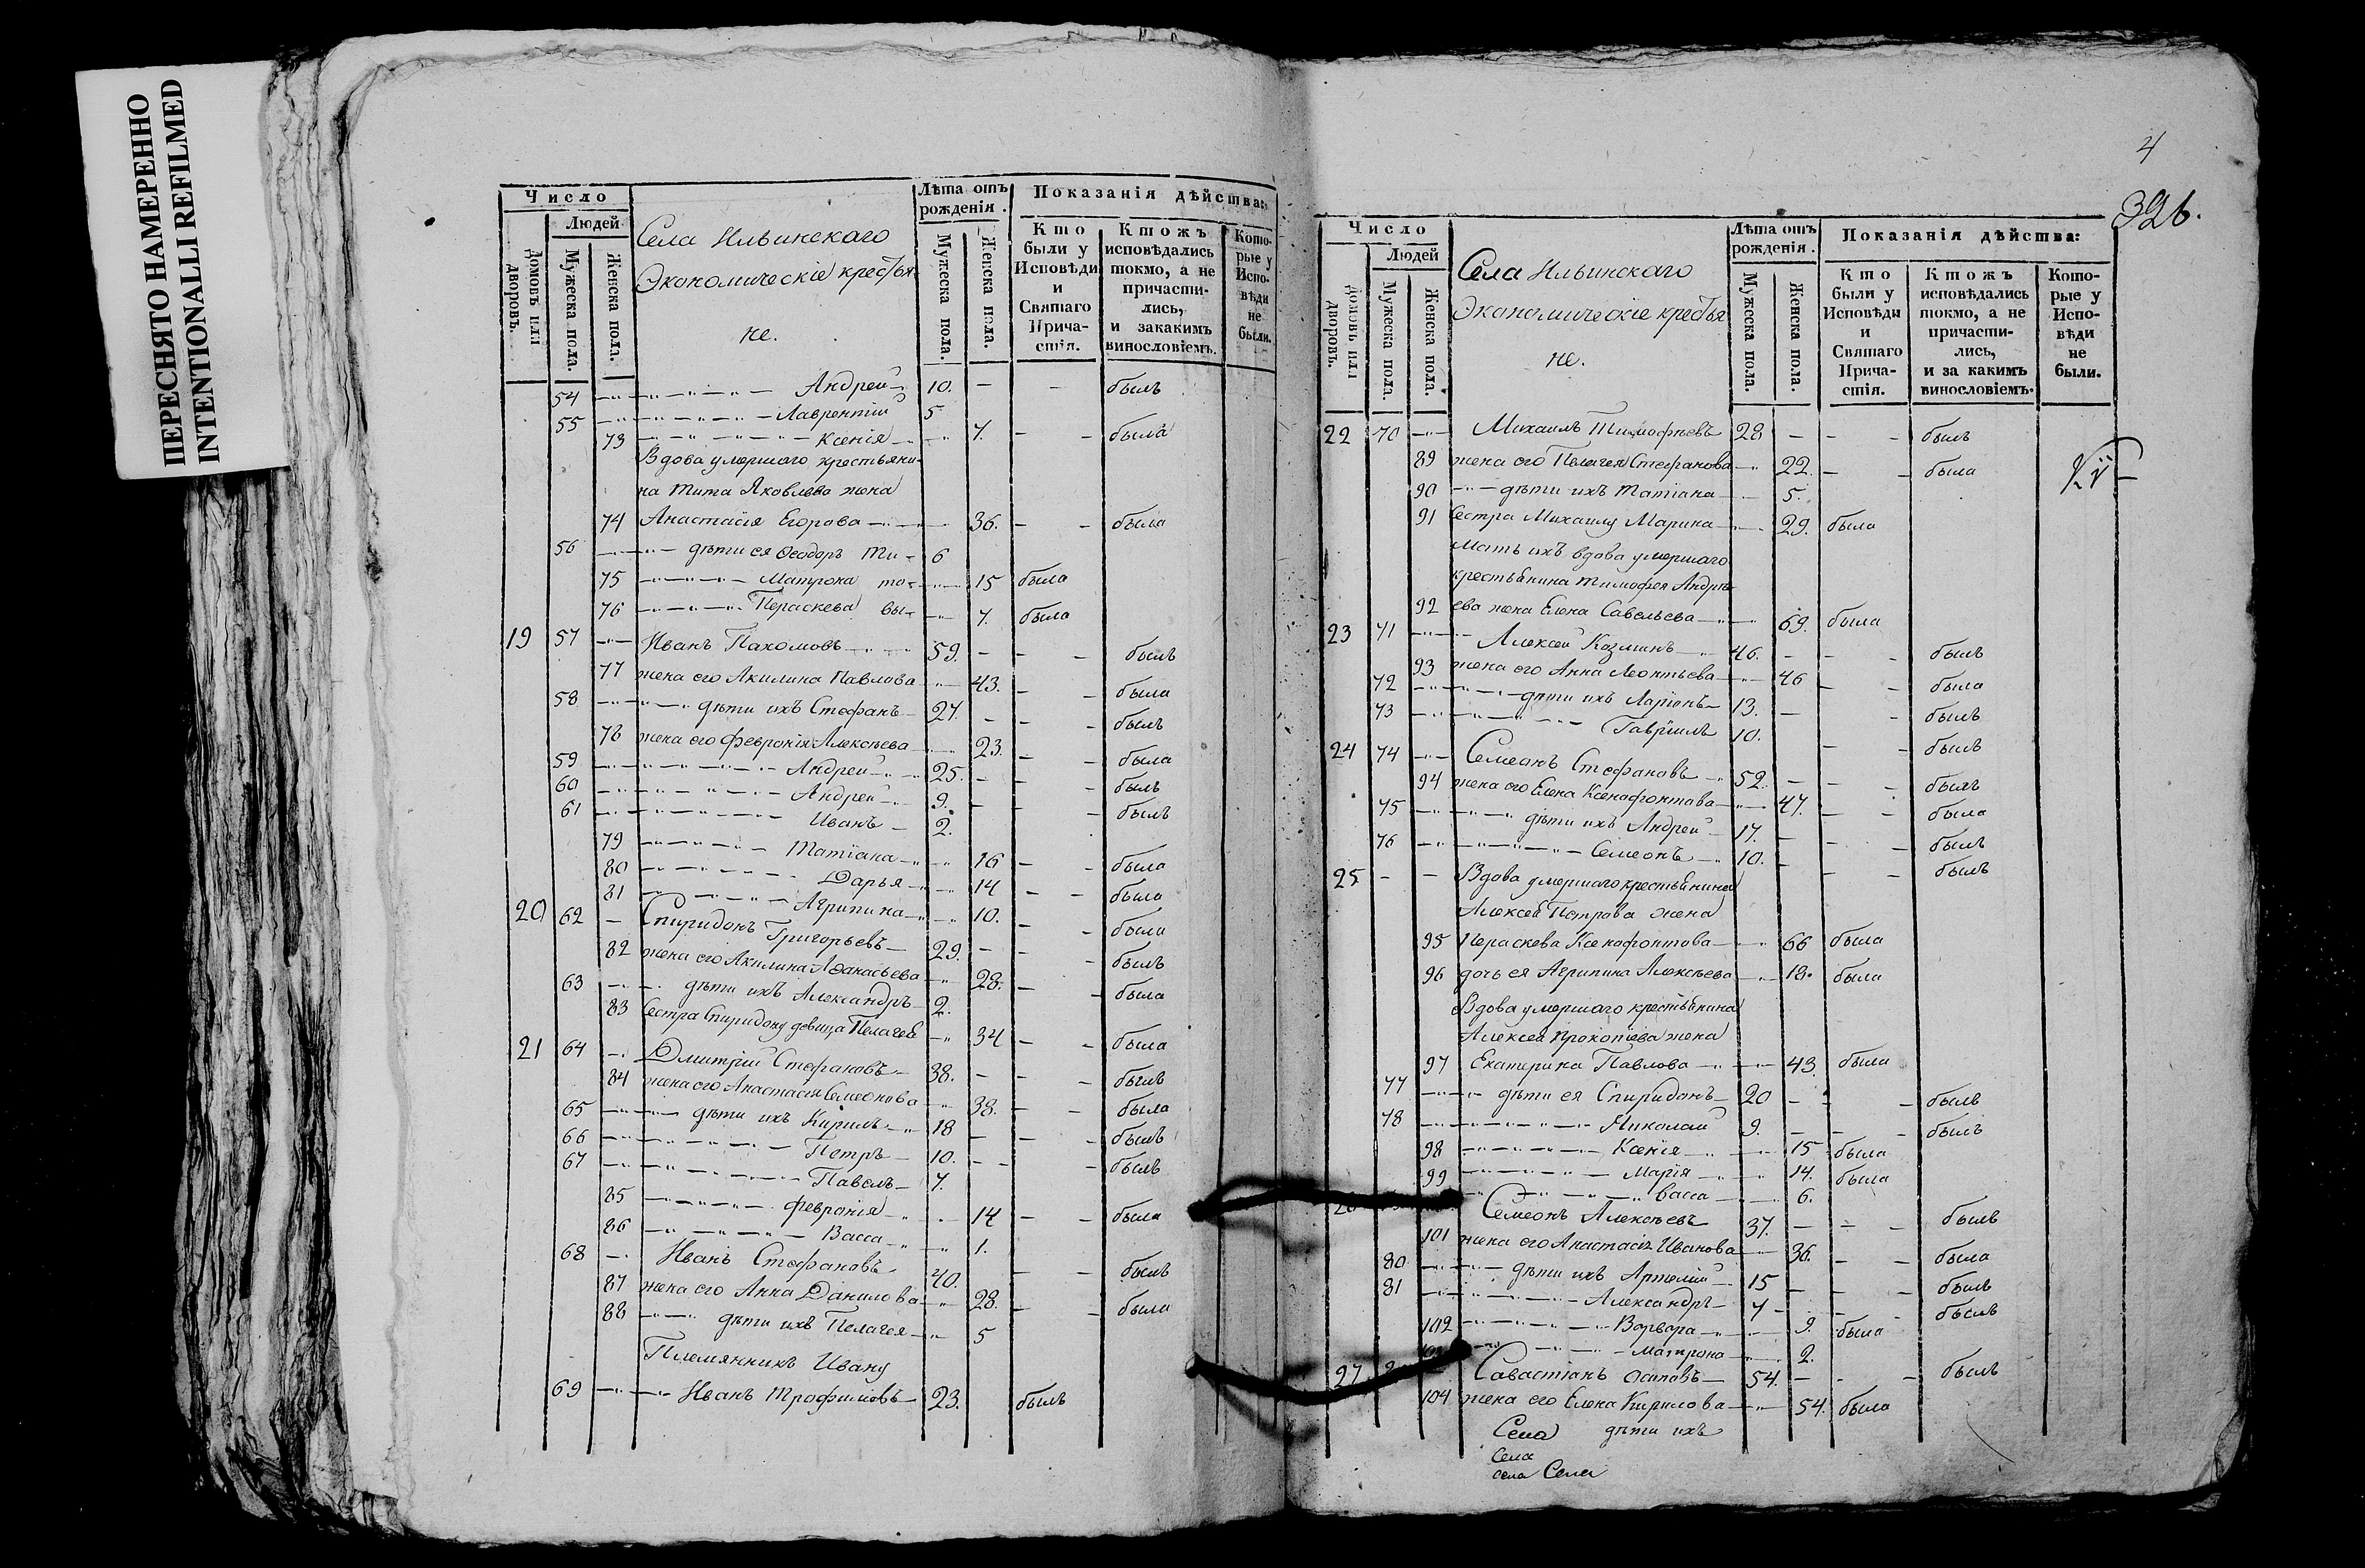 ПЕРЕСНЯТО НАМЕРЕННО
INTENTIONALLI REFILMED
Число
Людей
Домовъ или дворовъ.
Мужеска пола.
Женска пола.
Села Ильинскаго
Экономическіе крестья
не.
Лѣта отъ рожденія.
Мужеска пола.
Женска пола.
Показанія дѣйства:
Кто были у Исповѣди и Святаго Причастія.
Ктожъ исповѣдались токмо, а не причастились, и закакимъ винословіемъ.
Которые у Исповѣди не были.
54 Андрей 10. — — былъ
55 Лаврентій 5
73 Ксенія 7. — — была
Вдова умершаго крестьяни-
на Тита Яковлева жена
74 Анастасія Егорова 36. — — была
56 дѣти ея Ѳеодоръ Ти- 6
75 Матрона то- 15 была
76 Пераскева вы- 7. была
19 57 Иванъ Пахомовъ 59. — — былъ
77 жена его Акилина Павлова 43. — — была
58 дѣти ихъ Стефанъ 27. — — былъ
78 жена его Февронія Алексѣева 23. — — была
59 Андрей 25. — — былъ
60 Андрей 9. — — былъ
61 Иванъ 2.
79 Матіана 16 — — была
80 Дарья 14 — — была
81 Агрипина 10. — — была
20 62 Спиридонъ Григорьевъ 29. — — былъ
82 жена его Акилина Аѳанасьева 28. — — была
63 дѣти ихъ Александръ 2.
83 Сестра Спиридону девица Пелагеѣ 34 — — была
21 64 Дмитрій Стефановъ 38. — — былъ
84 жена его Анастасія Семеонова 38. — — была
65 дѣти ихъ Кирилъ 18 — — былъ
66 Петръ 10. — — былъ
67 Павелъ 7.
85 Февронія 14 — — была
86 Васса 1.
68 Иванъ Стефановъ 40. — — былъ
87 жена его Анна Данилова 28. — — была
88 дѣти ихъ Пелагея 5
Племянникъ Ивану
69 Иванъ Трофимовъ 23. былъ
4
326.
Число
Людей
Домовъ или дворовъ.
Мужеска пола.
Женска пола.
Села Ильинскаго
Экономическіе крестья
не.
Лѣта отъ рожденія.
Мужеска пола.
Женска пола.
Показанія дѣйства:
Кто были у Исповѣди и Святаго Причастія.
Ктожъ исповѣдались токмо, а не причастились, и за какимъ винословіемъ.
Которые у Исповѣди не были.
22 70 Михаилъ Тимофѣевъ 28 — — былъ
89 жена его Пелагея Стефанова 22. — — была
90 дѣти ихъ Татіана 5.
91 Сестра Михаилу Марина 29. была
Мать ихъ вдова умершаго
крестьянина Тимофея Андрѣ-
92 ева жена Елена Савельева 69. была
23 71 Алексей Козминъ 46. — — былъ
93 жена его Анна Леонтьева 46 — — была
72 дѣти ихъ Ларіонъ 13. — — былъ
73 Гавріилъ 10. — — былъ
24 74 Семеонъ Стефановъ 52. — — былъ
94 жена его Елена Ксенофонтова 47. — — была
75 дѣти ихъ Андрей 17. — — былъ
76 Семеонъ 10. — — былъ
25 — — Вдова умершаго крестьянина
Алексея Петрова жена
95 Пераскева Ксенофонтова 66 была
96 дочь ея Агрипина Алексѣева 18. была
Вдова умершаго крестьянина
Алексея Прокопіева жена
97 Екатерина Павлова 43. была
77 дѣти ея Спиридонъ 20 — — былъ
78 Николай 9. — — былъ
98 Ксенія 15 была
99 Марія 14. была
Васса 6.
Семеонъ Алексѣевъ 37. — — былъ
101 жена его Анастасія Иванова 36. — — была
80 дѣти ихъ Артемій 15 — — былъ
81 Александръ 7 — — былъ
102 Варвара 9. была
Матрона 2.
27 Савастіанъ Осиповъ 54. — — былъ
104 жена его Елена Кирилова 54. была
Села дѣти ихъ
Села
села Села